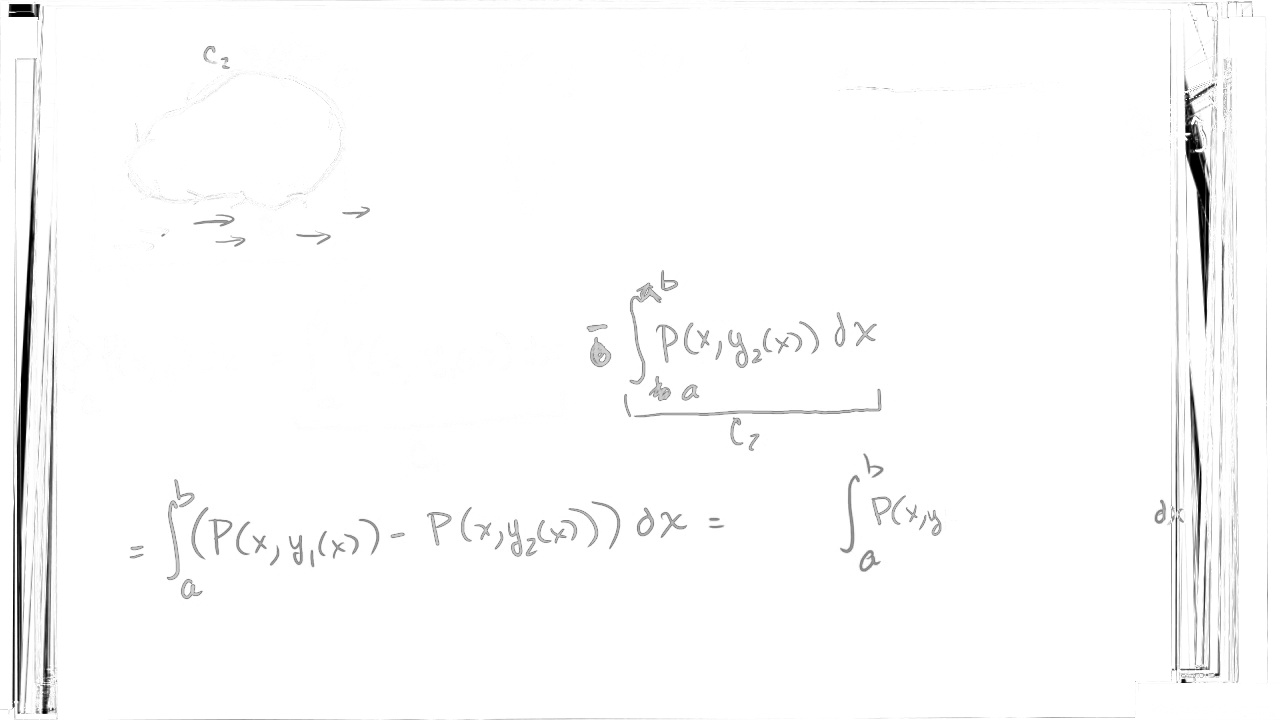 C₂
− ∫_a^b P(x, y₂(x)) dx
C₂
= ∫_a^b (P(x, y₁(x)) − P(x, y₂(x))) dx = ∫_a^b P(x, y dx